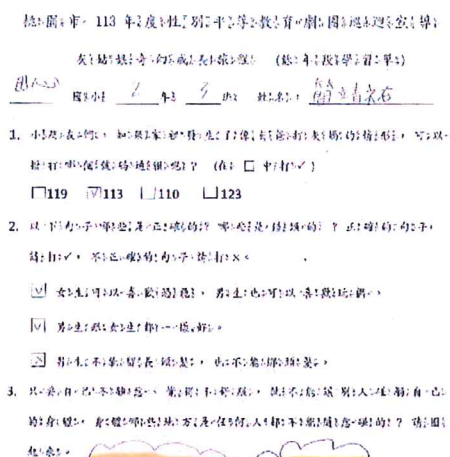 桃園市 113 年度性別平等教育劇團巡迴宣導
友站 奇向 成長旅程 (低年段學習單)
國小 2 年 3 班 姓名:
1. 小朋友們,如果家裡發生了像爸爸打媽媽的情形,可以
撥打哪個號碼通報呢? (在 □ 中打✓)
□119 ☑113 □110 □123
2. 以下句子哪些是正確的? 哪些是錯誤的? 正確的句子,
請打✓,不正確的句子請打×。
V 女生可以喜歡恐龍,男生也可以喜歡玩偶。
V 男生跟女生都一樣好。
男生不能留長頭髮,也不能綁頭髮。
3. 只要自己不願意、覺得不舒服,就不能讓別人碰觸自己
的身體,身體哪些地方是任何人都不能隨意碰的? 請圈
起來。